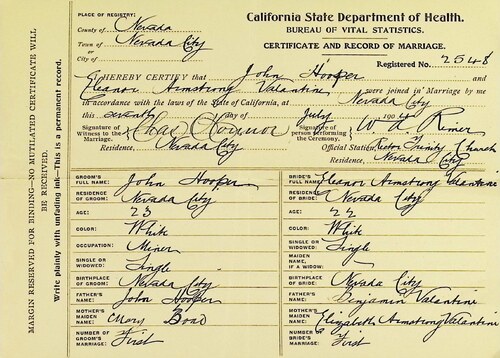 California State Department of Health.
BUREAU OF VITAL STATISTICS.
CERTIFICATE AND RECORD OF MARRIAGE.
Registered No. 2548
PLACE OF REGISTRY:
County of Nevada
Town of
or
City of
Nevada City
I HEREBY CERTIFY that John Hooper and
Eleanor Armstrong Valantine were joined in Marriage by me
in accordance with the laws of the State of California, at Nevada City
this seventh day of July 190
Signature of Witness to the Marriage,
Signature of person performing the Ceremony, W D Rimer
Residence, Nevada City
Official Station, Rector Trinity Church
Residence, Nevada City
GROOM'S FULL NAME: John Hooper
RESIDENCE OF GROOM: Nevada City
AGE: 23
COLOR: White
OCCUPATION: Miner
SINGLE OR WIDOWED: Single
BIRTHPLACE OF GROOM: Nevada City
FATHER'S NAME: John Hooper
MOTHER'S MAIDEN NAME: Mary
NUMBER OF GROOM'S MARRIAGE: First
BRIDE'S FULL NAME: Eleanor Armstrong Valantine
RESIDENCE OF BRIDE: Nevada City
AGE: 22
COLOR: White
SINGLE OR WIDOWED: Single
MAIDEN NAME, IF A WIDOW:
BIRTHPLACE OF BRIDE: Nevada City
FATHER'S NAME: Benjamin Valantine
MOTHER'S MAIDEN NAME: Elizabeth Armstrong Valantine
NUMBER OF BRIDE'S MARRIAGE: First
MARGIN RESERVED FOR BINDING—NO MUTILATED CERTIFICATE WILL
BE RECEIVED.
Write plainly with unfading ink—This is a permanent record.